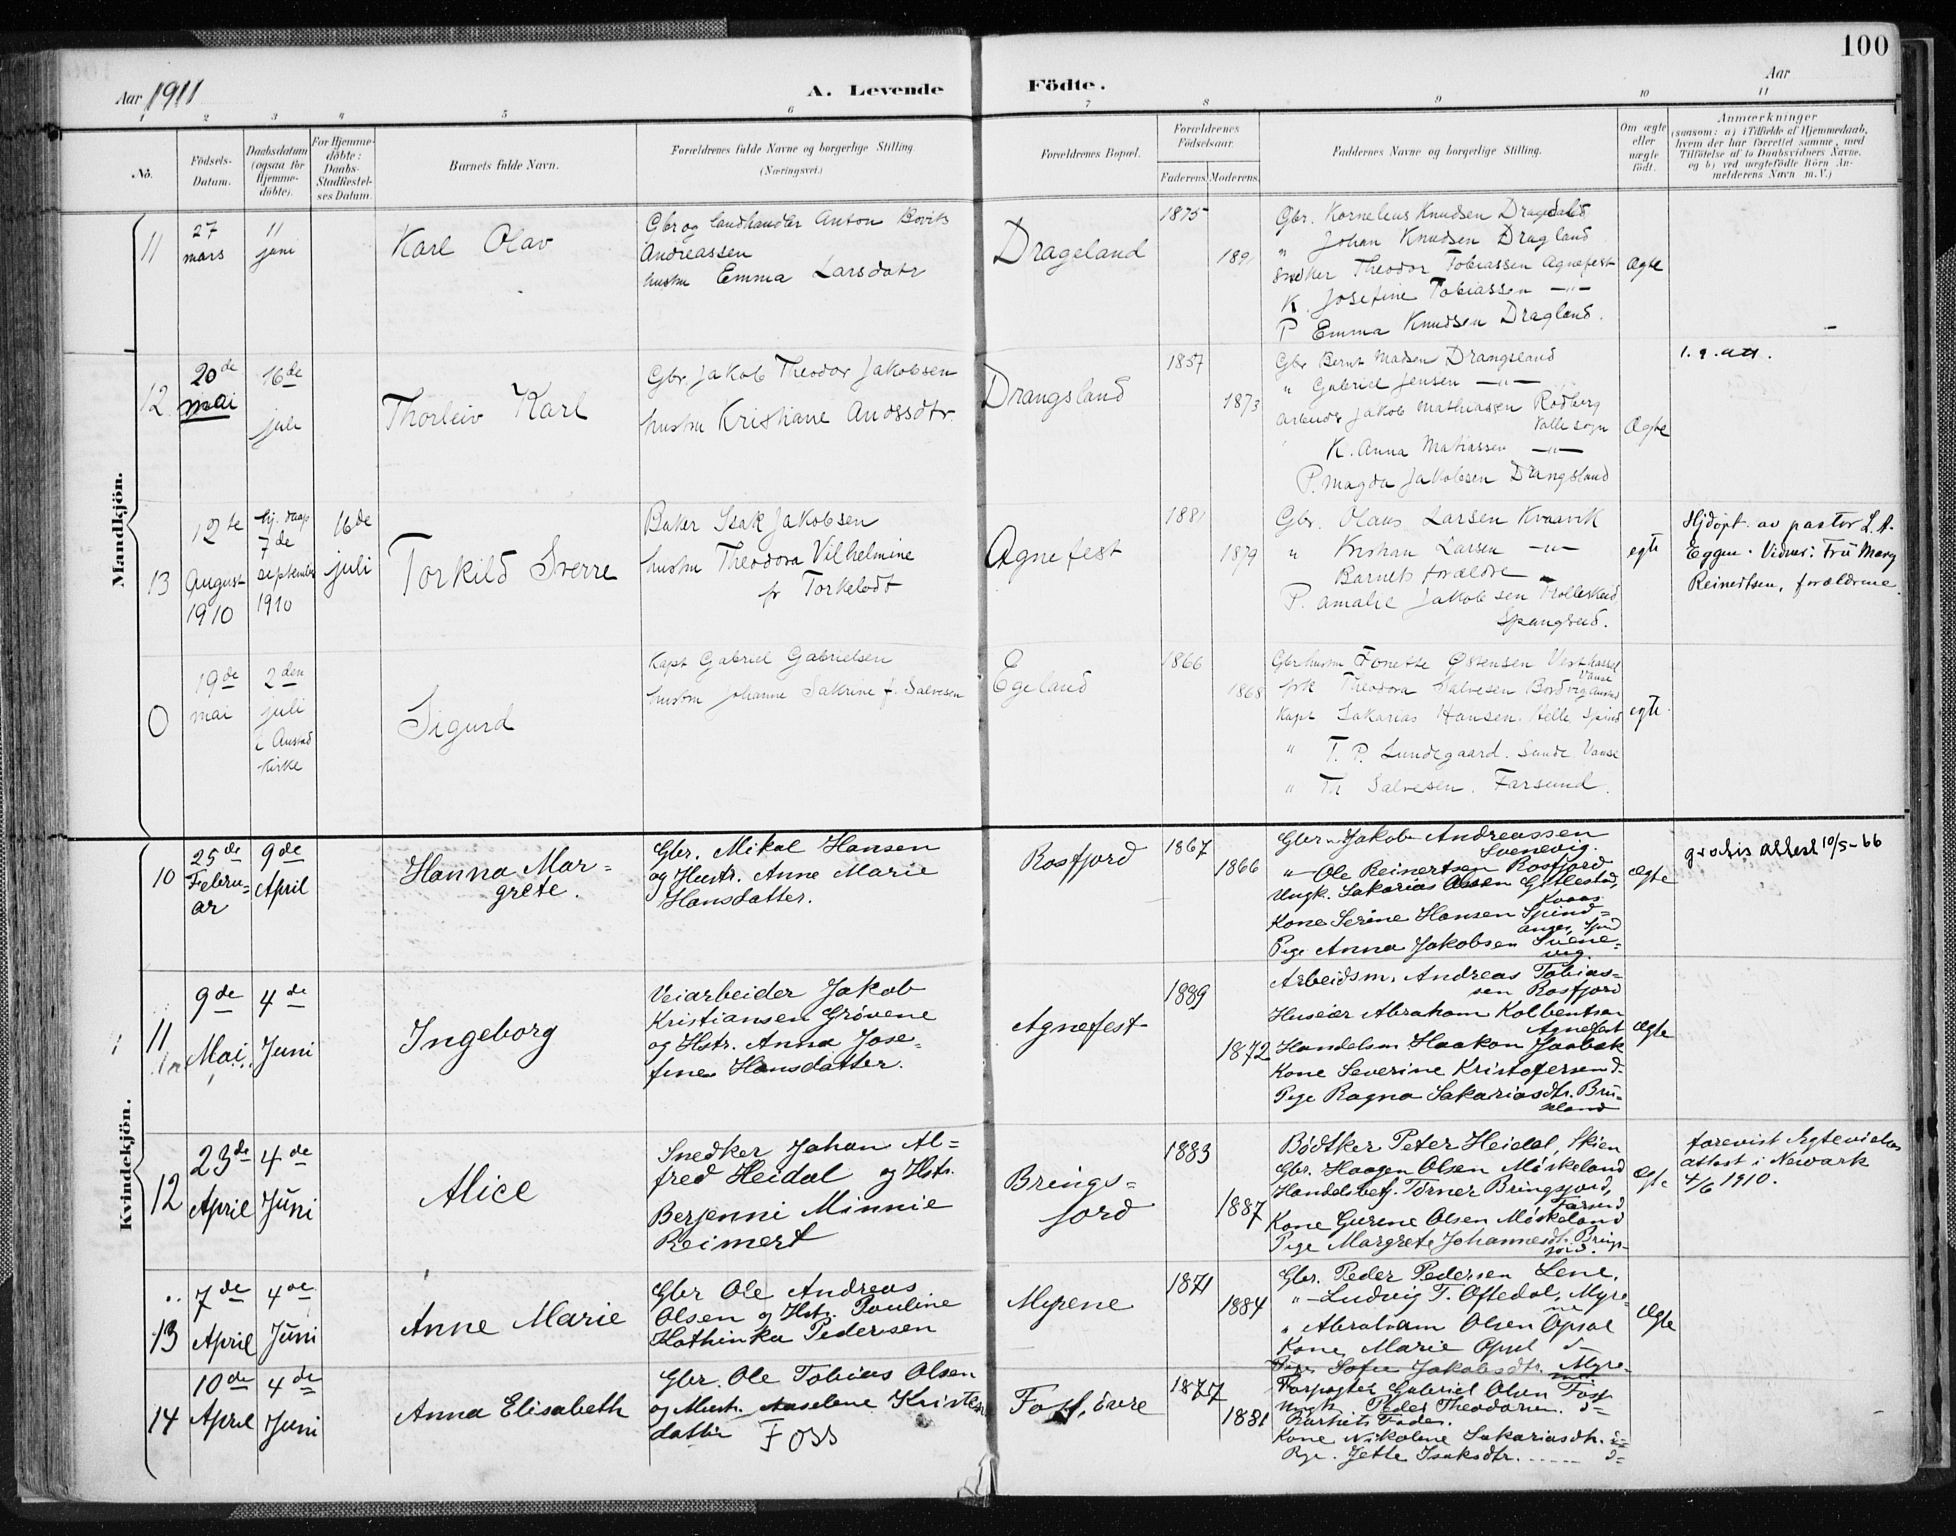 100
Aar 1911
A. Levende
Födte.
Aar
1 2 3 4 5 6 7 8 9 10 11
No.
Födsels-
Datum.
Daabsdatum
(ogsaa for
Hjemme-
döbte).
For Hjemme-
döbte:
Daabs-
Stadfæstel-
ses Datum.
Barnets fulde Navn.
Forældrenes fulde Navne og borgerlige Stilling.
(Næringsvei.)
Forældrenes Bopæl.
Forældrenes
Födselsaar.
Faderens. Moderens.
Faddernes Navne og borgerlige Stilling.
Om ægte
eller
uægte
födt.
Anmærkninger
(saasom: a) i Tilfælde af Hjemmedaab,
hvem der har forrettet samme, med
Tilföielse af to Daabsvidners Navne,
og b) ved uægtefödte Börn An-
melderens Navn m. V.)
Mandkjön.
11
27
mars
11
juni
Karl Olav
Gbr og landhandler Anton Boviks
Andreassen
hustru Emma Larsdatr
Drageland
1875
189
Gbr. Kornelius Knudsen Drageland
" Johan Knudsen Dragland
Snedker Theodor Tobiassen Agnefest
K. Josefine Tobiassen —"—
P Emma Knudsen Dragland.
Ægte
12
20de
mai
16de
juli
Thorleiv Karl
Gbr. Jakob Theodor Jakobsen
hustru Kristiane Andssdtr.
Drangsland
1857
1873
Gbr Bernt Madsen Drangsland
" Gabriel Jensen —"—
Arbeider Jakob Mathiassen Rødberg
Valle sogn
K. Anna Matiassen —"—
P. Magda Jakobsen Drangsland
Ægte
1. 9. att.
13
12te
August
1910
hj. daap
7de
september
1910
16de
juli
Torkild Sverre
Baker Isak Jakobsen
hustru Theodora Vilhelmine
f. Torkelsdt
Agnefest
1881
1879
Gbr. Olaus Larsen Kvaavik
" Kristian Larsen —"—
Barnets forældre
P. Amalie Jakobsen Trolleskeid
Spangreid.
egte
Hjdøpt. av pastor L. A.
Eggen. Vidner: Fru Mary
Reinertsen, forældrene.
0
19de
mai
2den
juli
i Austad
kirke
Sigurd
Kapt Gabriel Gabrielsen
hustru Johanne Sakrine f. Salvesen
Egeland
1866
1868
Gbrhustru Tonette Østensen Vesthassel
Vanse
frk Theodora Salvesen Bordvig Austad
Kapt Sakarias Hansen. Helle, Spind
" T. P. Lundegaard. Sunde Vanse
" Th Salvesen. Farsund.
egte.
Kvindekjön.
10
25de
Febru-
ar
9de
April
Hanna Mar-
grete.
Gbr. Mikal Hansen
og Hustr. Anne Marie
Hansdatter.
Rosfjord
1867
1866
Gbr. Jakob Andreassen
Svenevig.
" Ole Reinertsen Rosfjord
Ungk. Sakarias Aasen Gitlestad,
Kvaas
Kone Serine Hansen Spind-
anger, Spind
Pige Anna Jakobsen Svene-
vig.
Ægte
gratis attest 10/5-66
11
9de
Mai
4de
Juni
Ingeborg
Veiarbeider Jakob
Kristiansen Grøvene
og Hstr. Anna Jose-
fine Hansdatter.
Agnefest
1889
1872
Arbeidsm. Andreas Tobias-
sen Rosfjord
Huseier Abraham Kolbentsen
Agnefest
Handelsm. Haakon Jaabæk
Kone Severine Kristofersen d-
Pige Ragna Sakariasdtr. Bru-
seland
Ægte
12
23de
April
4de
Juni
Alice
Snedker Johan Al-
fred Heidal og Hstr.
Berjenni Minnie
Reimert
Brings-
fjord
1883
1887
Bødtker Peter Heidal, Skien
Gbr. Haagen Olsen Møskeland
Handelsbetj. Torner Bringsjord,
Farsund
Kone Gurene Olsen Møskeland
Pige Margrete Johannesdtr. Brings-
jord.
Ægte
forevist Ægtevielses
attest i Newark
4/6 1910.
13
7de
April
4de
Juni
Anne Marie
Gbr Ole Andreas
Olsen og Hstr. Pauline
Kathinka Pedersen
Myrene
1871
1884
Gbr. Peder Pedersen Lene,
" Ludvig T. Oftedal, Myre-
ne
" Abraham Olsen Opsal
Kone Marie Opsal d-
Pige Sofie Jakobsdtr. Myre-
ne
Ægte
14
10de
April
4de
Juni
Anna Elisabeth
Gbr. Ole Tobias Olsen
og Hustr. Aaselene Kristen
datter Foss
Foss, øvre
1877
1881
Forpagter Gabriel Olsen Foss
Ungk Peder Theodorsen d-
Barnets Fader.
Kone Nikoline Sakariasdtr. d-
Pige. Jette Isaksdtr. ----- d-